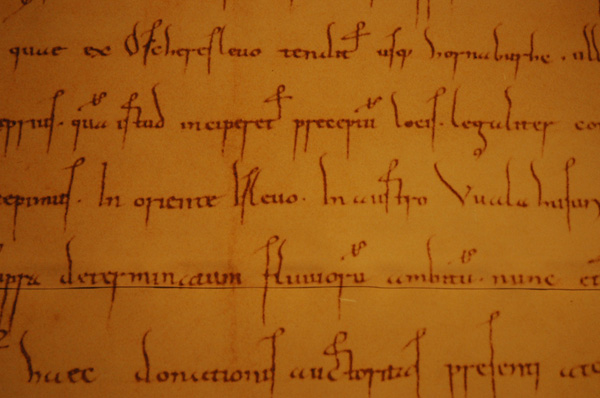 quae ex Oscheresleuo tendit usq hornaburhe. ull
prius. qua istud inciperet preceptu locis. legaliter co
cepimus. In oriente Usleuo. In austro Uuala husun
supra determinatum fluuioru ambitu. nunc et
haec donationis auctoritas presenti ate